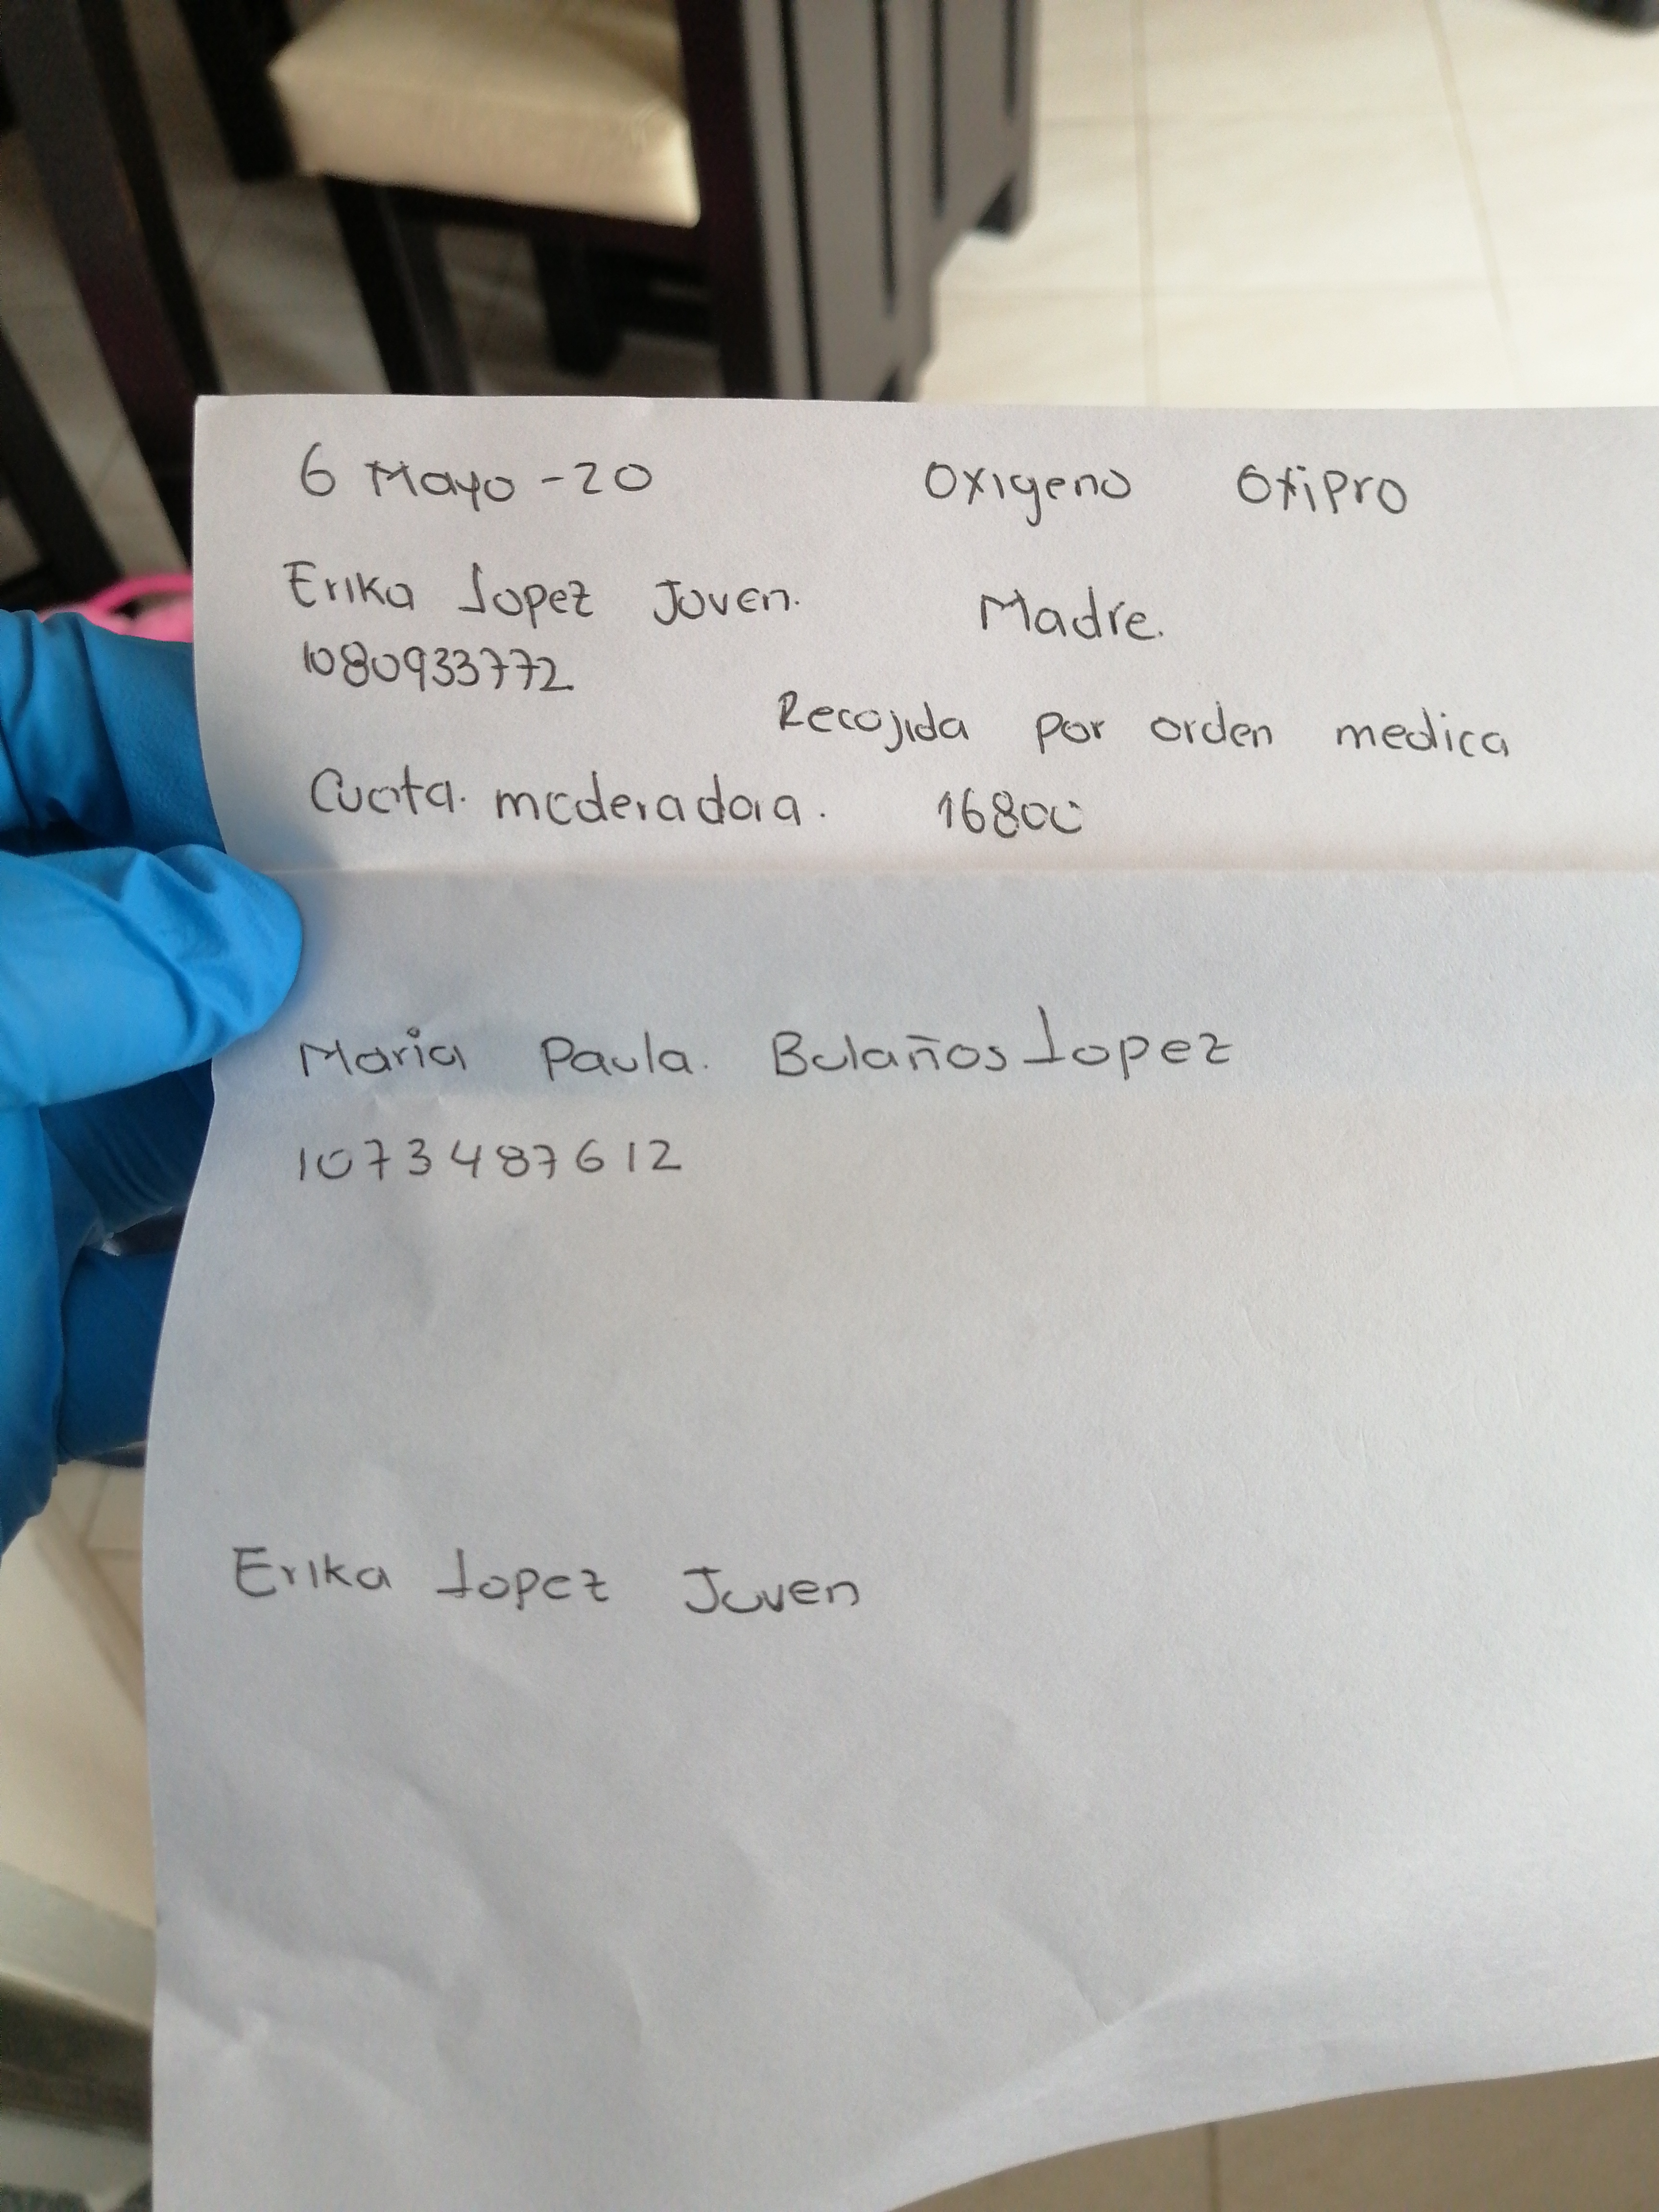 6 Mayo -20 Oxigeno Oxipro
Erika Lopez Joven. Madre.
1080933772
Recojida por orden medica
Cuota. moderadora. 16800
Maria Paula. Bolaños Lopez
1073487612
Erika Lopez Joven